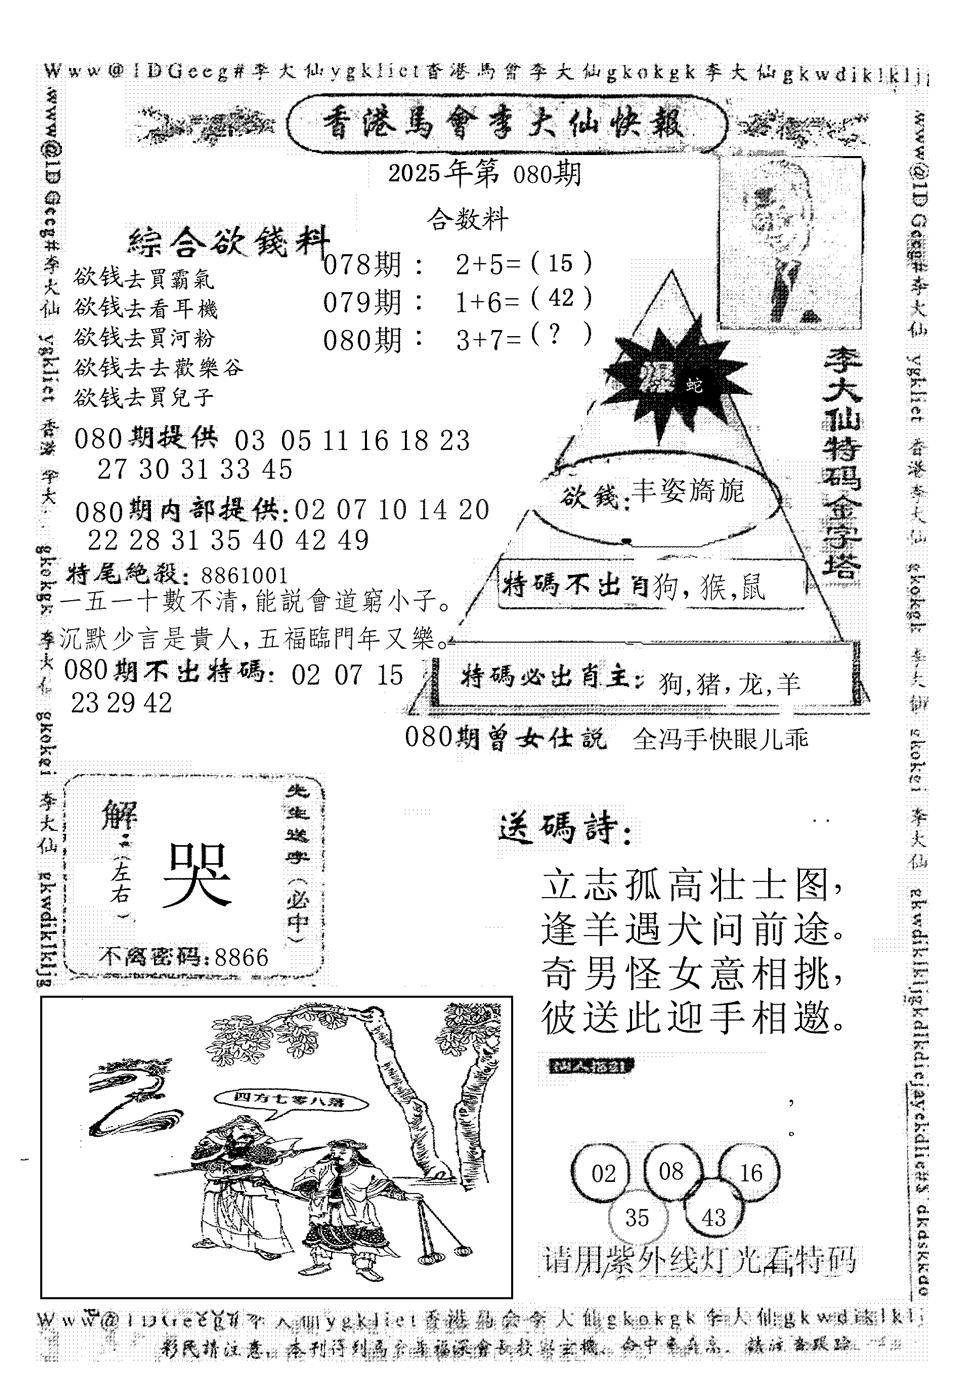 Www@1DGeeg#李大仙ygkliet香港馬會李大仙gkokgk李大仙gkwdiklklj
香港馬會李大仙快報
2025年第 080期
合数料
綜合欲錢料
078期： 2+5=（15）
079期： 1+6=（42）
080期： 3+7=（?）
欲钱去買霸氣
欲钱去看耳機
欲钱去買河粉
欲钱去去歡樂谷
欲钱去買兒子
爆 蛇
李大仙特码金字塔
080期提供 03 05 11 16 18 23
27 30 31 33 45
欲錢:丰姿旖旎
080期内部提供:02 07 10 14 20
22 28 31 35 40 42 49
特尾絶殺: 8861001
特碼不出肖狗,猴,鼠
一五一十數不清,能説會道窮小子。
沉默少言是貴人,五福臨門年又樂。
080期不出特碼: 02 07 15
23 29 42
特碼必出肖主: 狗,猪,龙,羊
080期曾女仕説 全冯手快眼儿乖
解:（左右）
哭
先生送字（必中）
不离密码:8866
送碼詩:
立志孤高壮士图,
逢羊遇犬问前途。
奇男怪女意相挑,
彼送此迎手相邀。
四方七零八落
02 08 16
35 43
请用紫外线灯光看特码
www@1DGeeg#李大仙 ygkliet 香港 李大 gkokgk 李大仙 gkokei 李大仙 gkwdiklkljg
www@1DGeeg#李大仙 ygkliet 香港李大仙 gkokgk 李大仙 gkokei 李大仙 gkwdiklkljgkdlkdiejayckdlie#$ dkdskkdo
李大仙ygkliet香港馬会李大仙gkokgk李大仙gkwdiklklj
彩民請注意